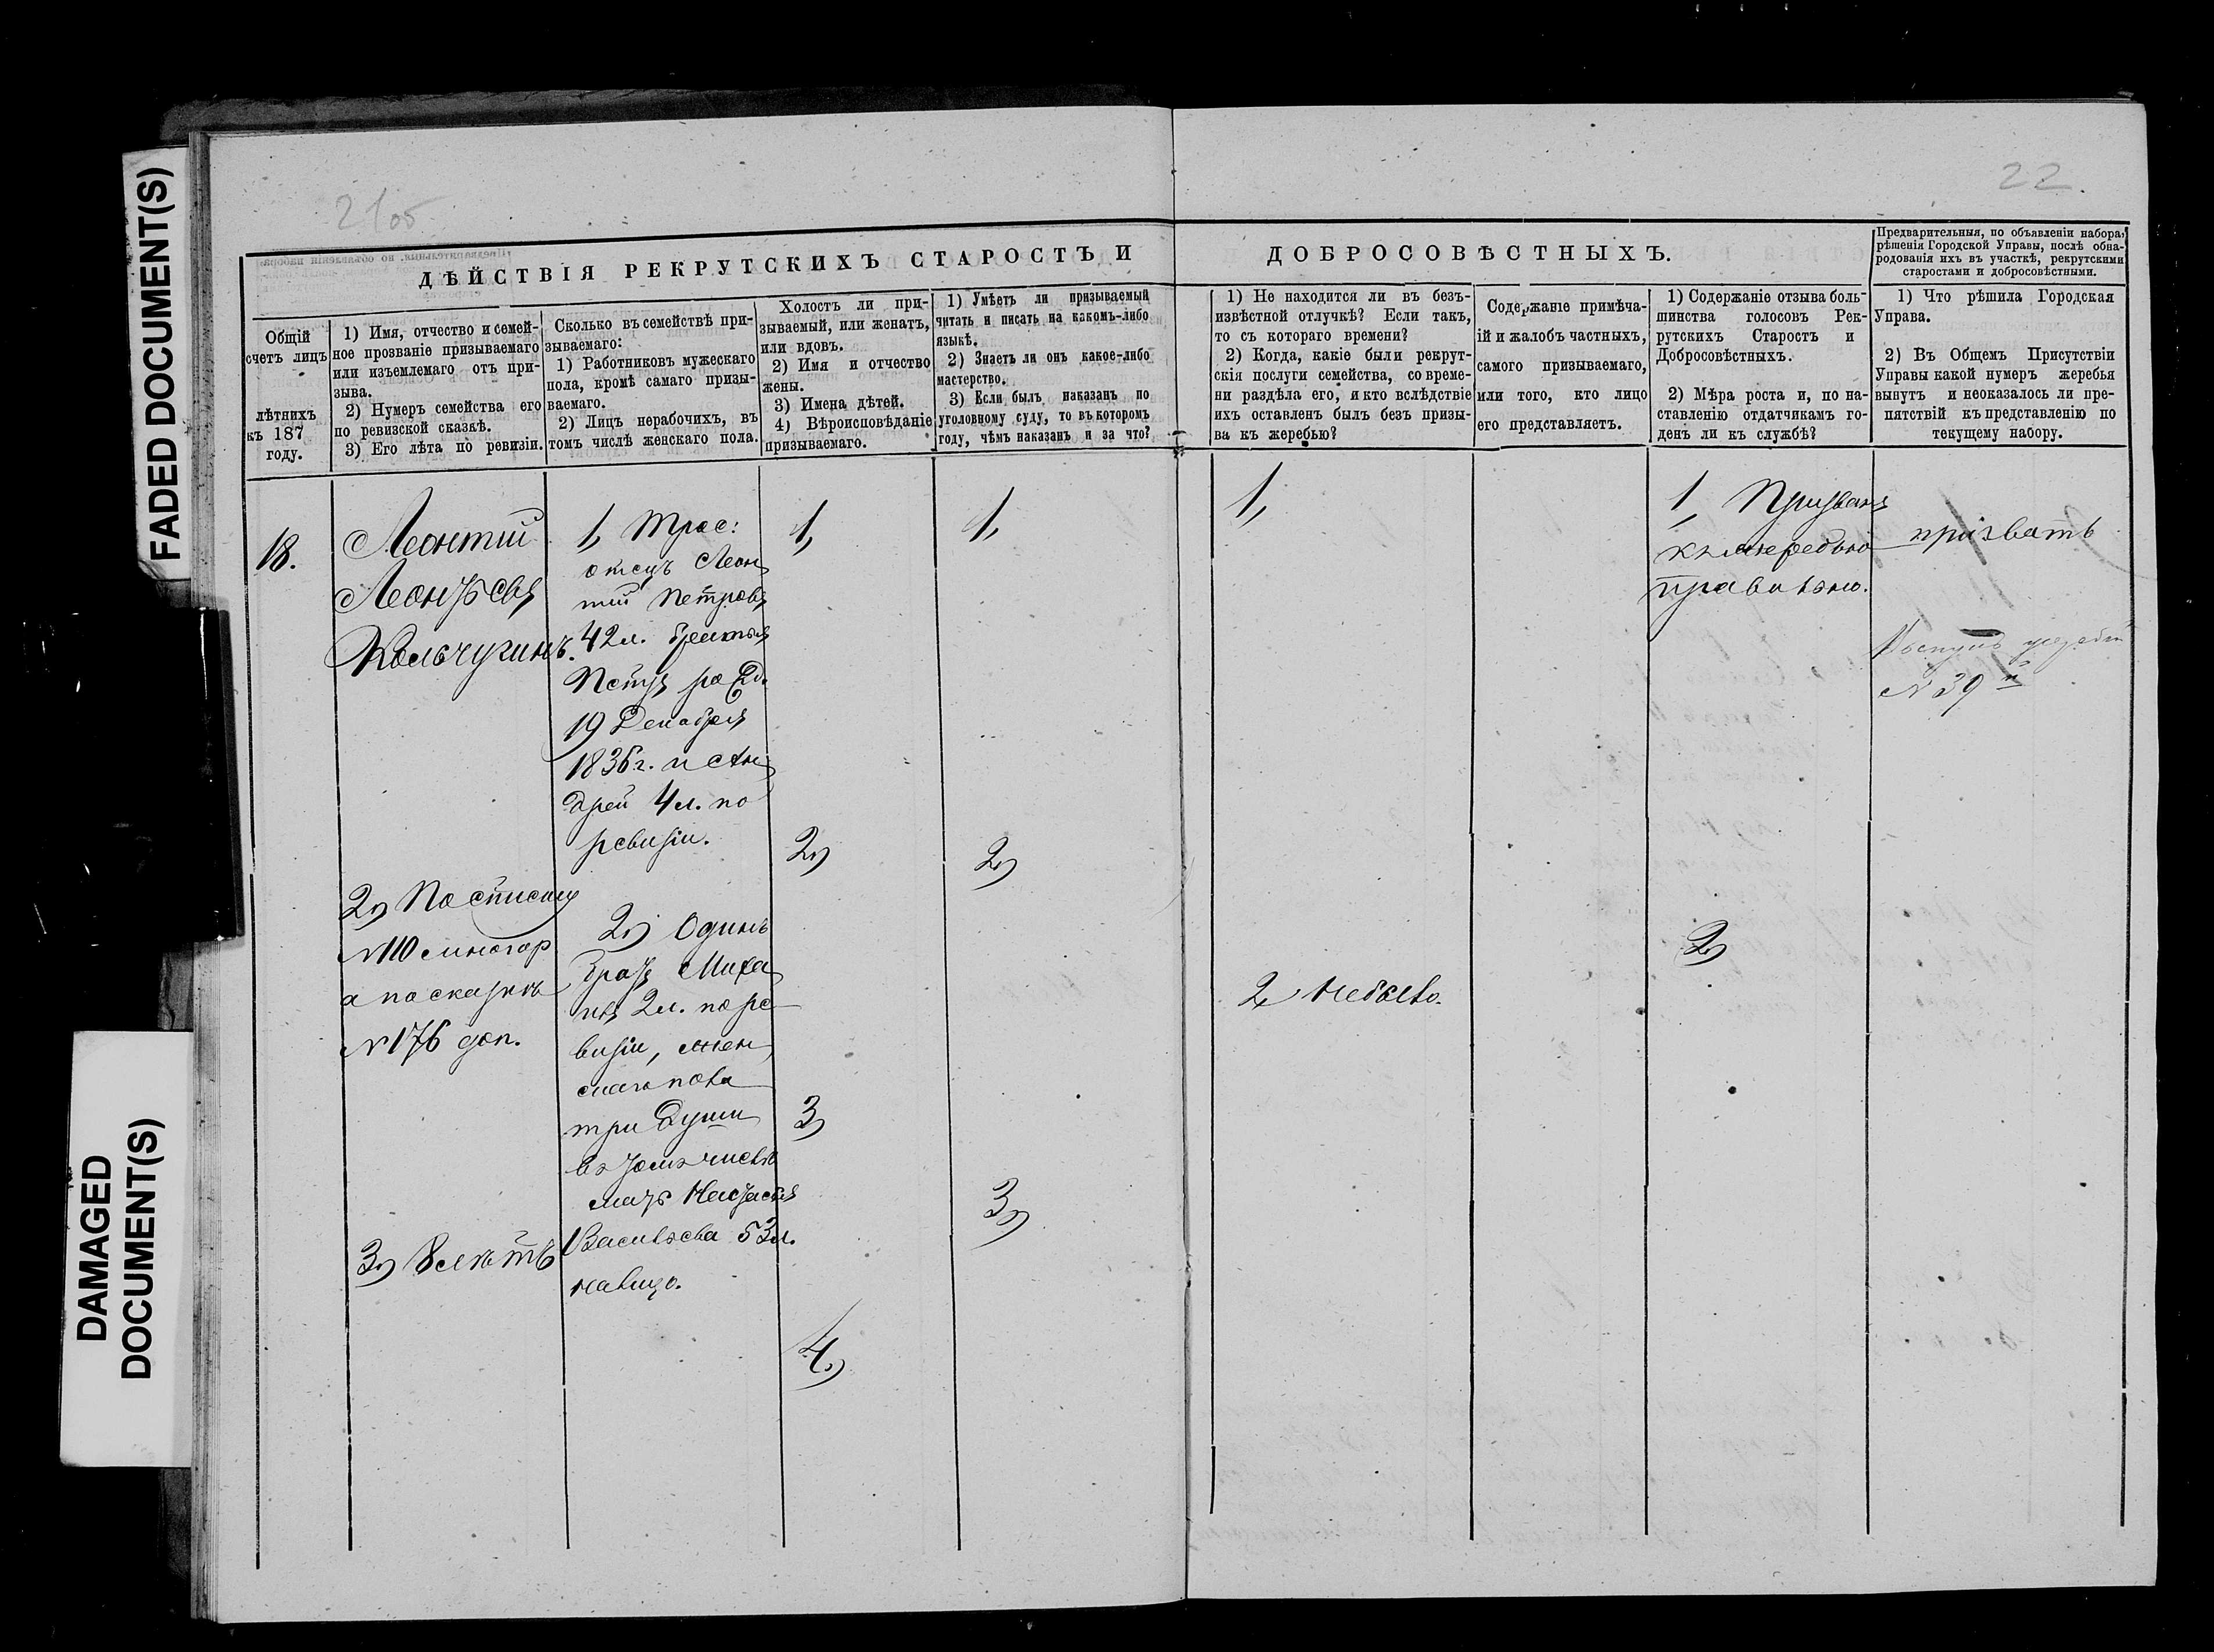 FADED DOCUMENT(S)
DAMAGED
DOCUMENT(S)
21об
22.
ДѢЙСТВІЯ РЕКРУТСКИХЪ СТАРОСТЪ И
ДОБРОСОВѢСТНЫХЪ.
Предварительныя, по объявленіи набора,
рѣшенія Городской Управы, послѣ обна-
родованія ихъ въ участкѣ, рекрутскими
старостами и добросовѣстными.
Общій
счетъ лицъ
лѣтнихъ
къ 187
году.
1) Имя, отчество и семей-
ное прозваніе призываемаго
или изъемлемаго отъ при-
зыва.
2) Нумеръ семейства его
по ревизской сказкѣ.
3) Его лѣта по ревизіи.
Сколько въ семействѣ при-
зываемаго:
1) Работниковъ мужескаго
пола, кромѣ самаго призы-
ваемаго.
2) Лицъ нерабочихъ, въ
томъ числѣ женскаго пола.
Холостъ ли при-
зываемый, или женатъ,
или вдовъ.
2) Имя и отчество
жены.
3) Имена дѣтей.
4) Вѣроисповѣданіе
призываемаго.
1) Умѣетъ ли призываемый
читать и писать на какомъ-либо
языкѣ.
2) Знаетъ ли онъ какое-либо
мастерство.
3) Если былъ наказанъ по
уголовному суду, то въ которомъ
году, чѣмъ наказанъ и за что?
1) Не находится ли въ безъ-
извѣстной отлучкѣ? Если такъ,
то съ котораго времени?
2) Когда, какіе были рекрут-
скія послуги семейства, со време-
ни раздѣла его, и кто вслѣдствіе
ихъ оставленъ былъ безъ призы-
ва къ жеребью?
Содержаніе примѣча-
ій и жалобъ частныхъ,
самого призываемаго,
или того, кто лицо
его представляетъ.
1) Содержаніе отзыва боль-
шинства голосовъ Рек-
рутскихъ Старостъ и
Добросовѣстныхъ.
2) Мѣра роста и, по на-
ставленію отдатчикамъ го-
денъ ли къ службѣ?
1) Что рѣшила Городская
Управа.
2) Въ Общемъ Присутствіи
Управы какой нумеръ жеребья
вынутъ и неоказалось ли пре-
пятствій къ представленію по
текущему набору.
18.
Леонтій
Леонтьевъ
Кольчугинъ.
2) По списку
N 110 многор
а по сказкѣ
N 176 доп.
3) 8 лѣтъ
1, Трое:
отецъ Леон
тій Петровъ
42 л. братья
Петръ рожд.
19 Декабря
1836 г. и Ан
дрей 4 л. по
ревизіи.
2) Одинъ
братъ Миха
илъ 2 л. по ре
визіи, жен
скаго пола
три души
въ томъ числѣ
мать Настасья
Васильева 53 л.
налицо.
1,
2)
3)
4)
1,
2)
3)
1,
2, Небыло.
1, Призванъ
къ жеребью
правильно.
2)
призвать
Вынулъ жребій
N 39 й